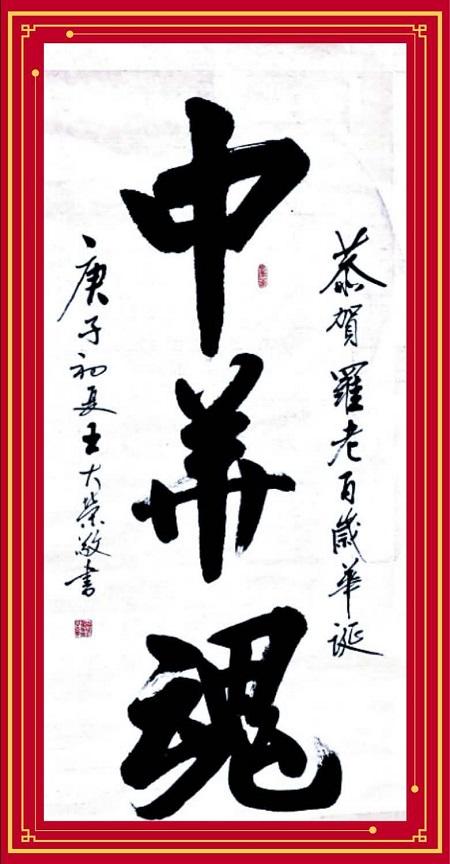 恭賀羅老百歲華誕
中華魂
庚子初夏王大榮敬書